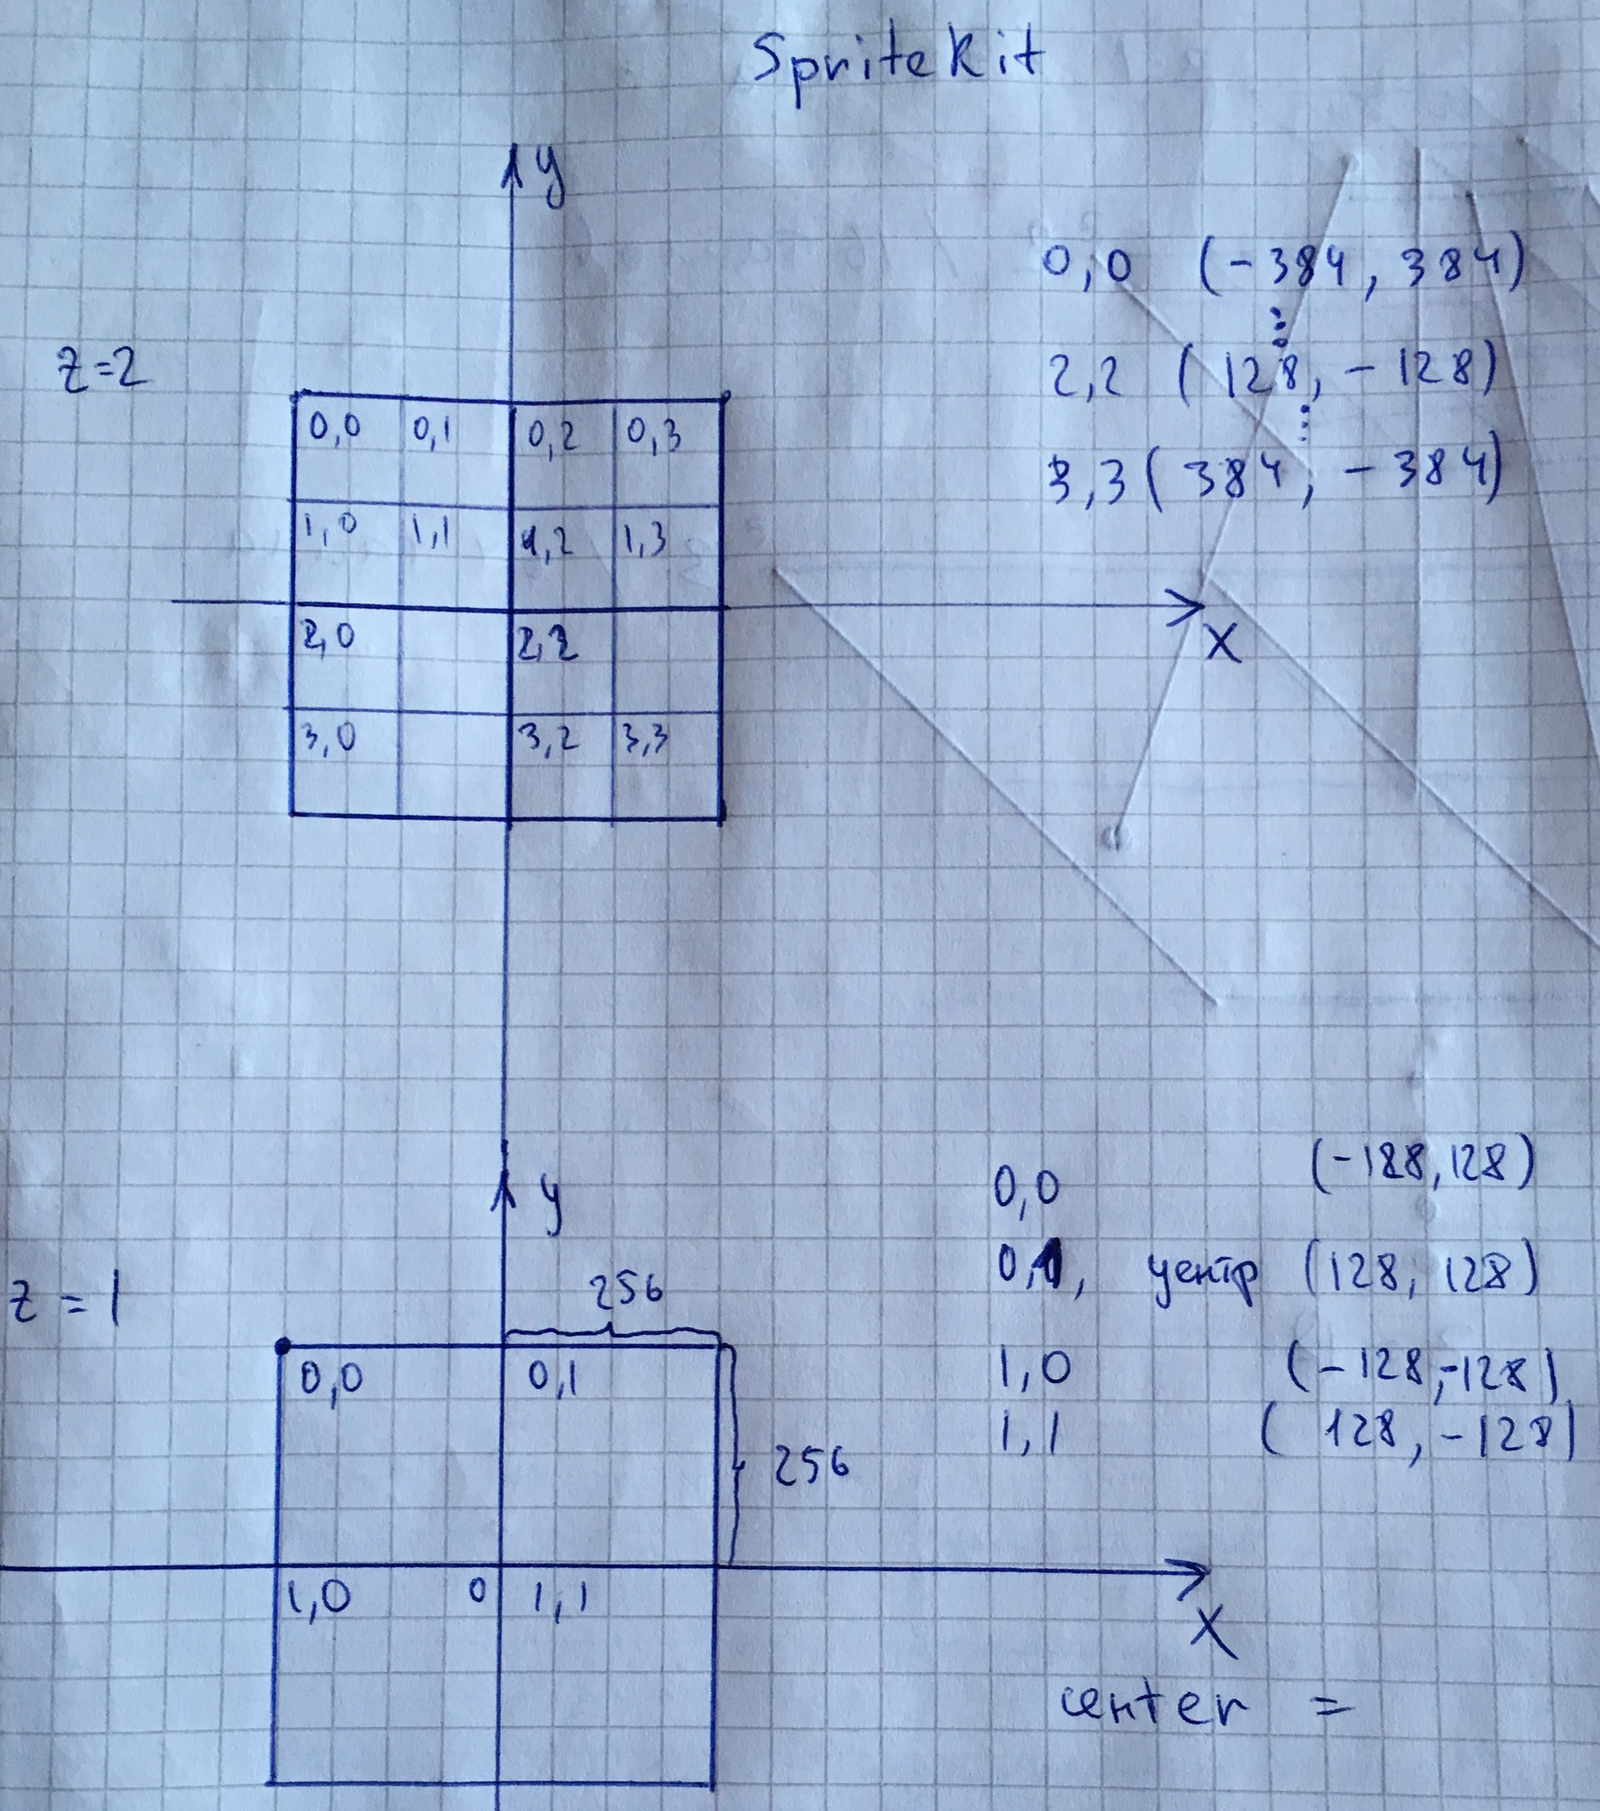 SpriteKit
y
0,0 (-384, 384)
⋮
z=2
2,2 (128, -128)
⋮
0,0 0,1 0,2 0,3
3,3 (384, -384)
1,0 1,1 1,2 1,3
2,0 2,2
x
3,0 3,2 3,3
0,0 (-128, 128)
y
0,1, центр (128, 128)
z = 1
256
1,0 (-128, -128)
0,0 0,1
1,1 (128, -128)
256
1,0 0 1,1
x
center =